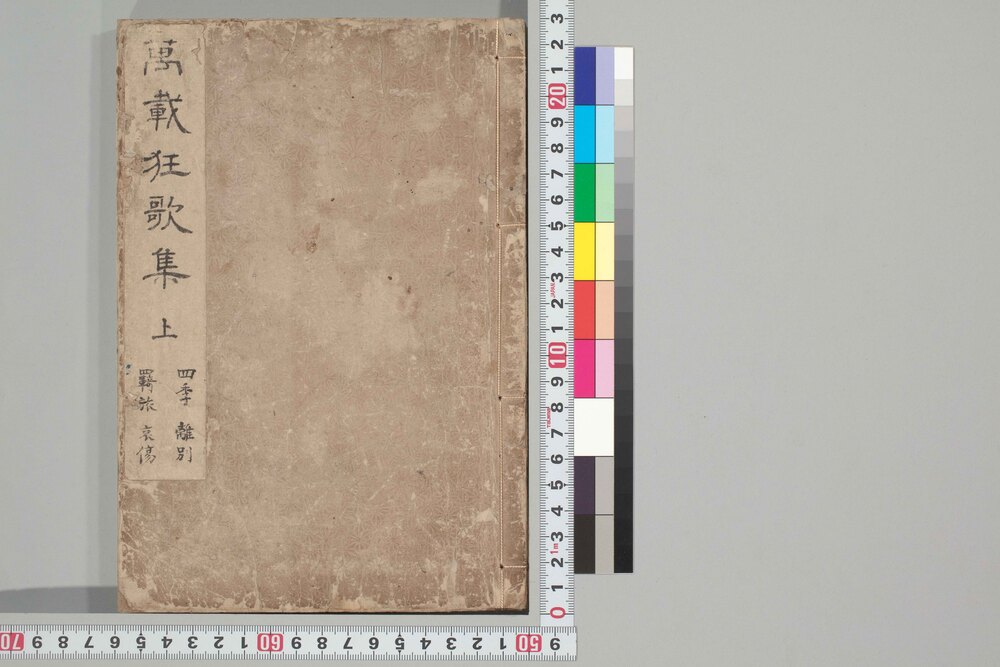 萬載狂歌集 上
四季 離別
羇旅 哀傷
3
2
1
20
9
8
7
6
5
4
3
JAPAN
2
1
10
9
8
7
6
5
4
3
1m
2
1
0
70 9 8 7 6 5 4 3 2 1 60 9 8 7 6 5 4 3 2 1 50 9